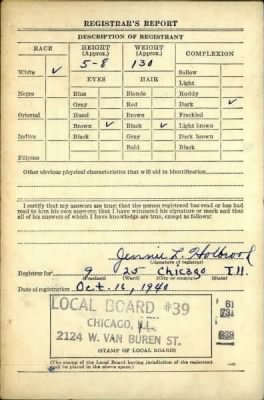 REGISTRAR'S REPORT
DESCRIPTION OF REGISTRANT
RACE HEIGHT (Approx.) WEIGHT (Approx.) COMPLEXION
White ✓ 5-8 130 Sallow
EYES HAIR Light
Negro Blue Blonde Ruddy
Gray Red Dark ✓
Oriental Hazel Brown Freckled
Brown ✓ Black ✓ Light brown
Indian Black Gray Dark brown
Bald Black
Filipino
Other obvious physical characteristics that will aid in identification
I certify that my answers are true; that the person registered has read or has had
read to him his own answers; that I have witnessed his signature or mark and that
all of his answers of which I have knowledge are true, except as follows:
Jennie L. Holbrook
(Signature of registrar)
Registrar for 9 25 Chicago Ill.
(Precinct) (Ward) (City or county) (State)
Date of registration Oct. 16, 1940
LOCAL BOARD #39
CHICAGO, ILL.
2124 W. VAN BUREN ST.
STAMP OF LOCAL BOARD
(The stamp of the Local Board having jurisdiction of the registrant
shall be placed in the above space.)